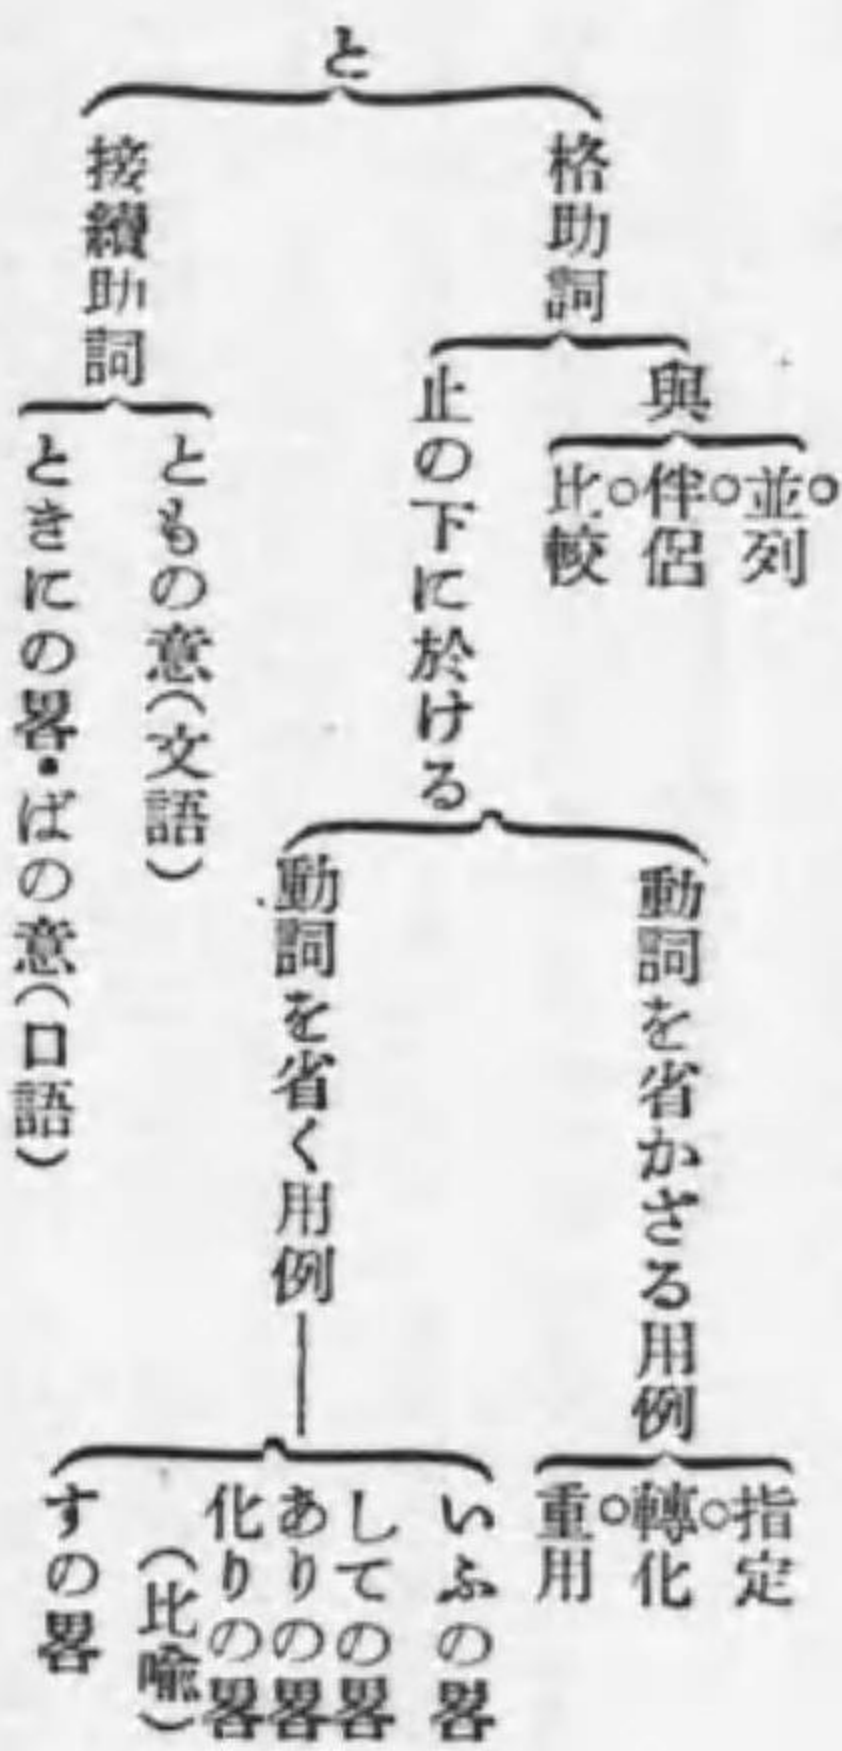 と
格助詞
與
並列
伴侶
比較
止の下に於ける
動詞を省かざる用例
指定
轉化
重用
動詞を省く用例
いふの畧
しての畧
ありの畧
化りの畧
(比喩)
すの畧
接續助詞
ともの意(文語)
ときにの畧・ばの意(口語)